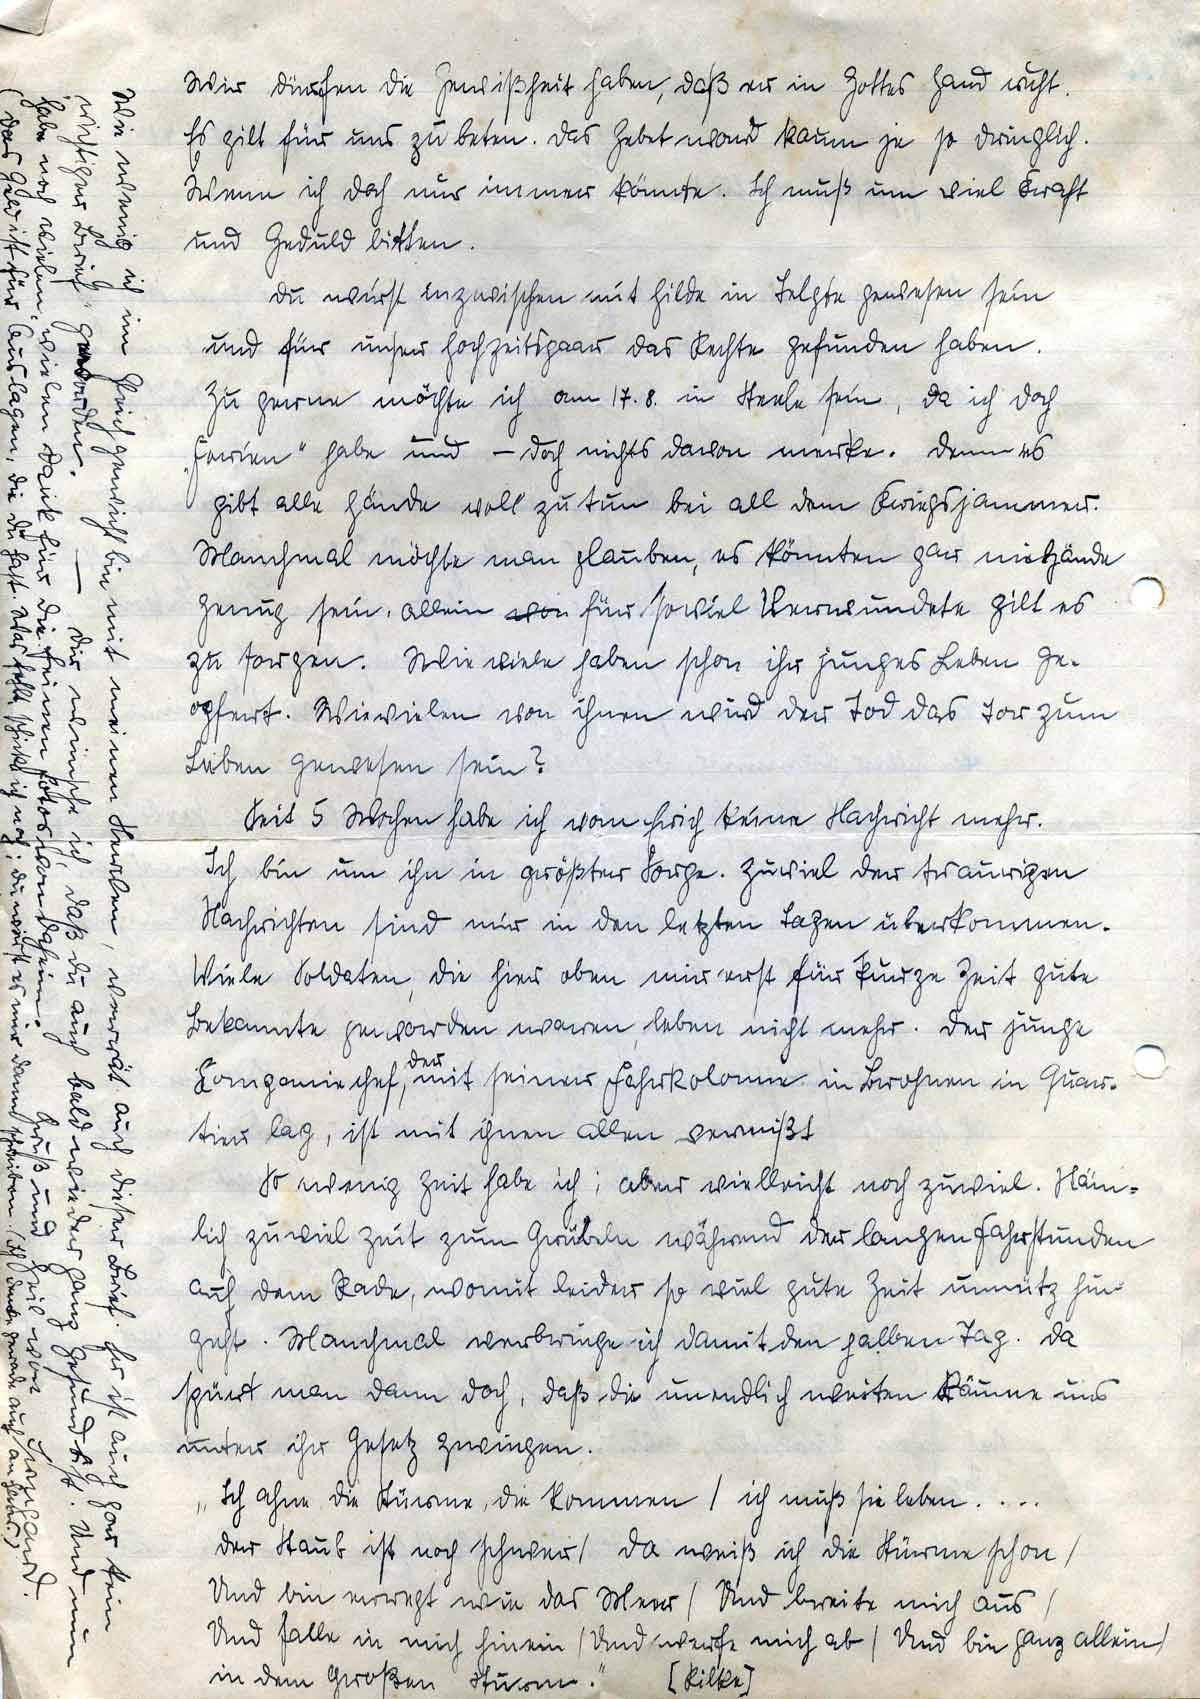 Wir dürfen die Gewißheit haben, daß er in Gottes Hand ruht.
Es gilt für uns zu beten. Das Gebet ward kaum je so dringlich.
Wenn ich doch nur immer könnte. Ich muß um viel Kraft
und Geduld bitten.
Du wirst inzwischen mit Hilde in Telgte gewesen sein
und für unser Hochzeitspaar das Rechte gefunden haben.
Zu gerne möchte ich am 17.8. in Steele sein, da ich doch
„Ferien“ habe und – doch nichts davon merke. Denn es
gibt alle Hände voll zu tun bei all dem Kriegsjammer.
Manchmal möchte man glauben, es könnten gar nie Hände
genug sein. Allein von für soviel Verwundete gilt es
zu sorgen. Wie viele haben schon ihr junges Leben ge-
opfert. Wievielen von ihnen wird der Tod das Tor zum
Leben gewesen sein?
Seit 5 Wochen habe ich von Erich keine Nachricht mehr.
Ich bin um ihn in größter Sorge. Zuviel der traurigen
Nachrichten sind mir in den letzten Tagen überkommen.
Viele Soldaten, die hier oben mir erst für kurze Zeit gute
Bekannte geworden waren, leben nicht mehr. Der junge
Kompaniechef, der mit seiner Fahrkolonne in Brohnen in Quar-
tier lag, ist mit ihnen allen vermißt
So wenig Zeit habe ich; aber vielleicht noch zuviel. Näm-
lich zuviel Zeit zum Grübeln während der langen Fahrstunden
auf dem Rade, womit leider so viel gute Zeit unnütz hin
geht. Manchmal verbringe ich damit den halben Tag. Da
spürt man dann doch, daß die unendlich weiten Räume uns
unter ihr Gesetz zwingen.
„Ich ahne die Stürme, die kommen / ich muß sie leben. . . .
der Staub ist noch schwer / da weiß ich die Stürme schon /
Und bin erregt wie das Meer / Und breite mich aus /
Und falle in mich hinein / Und werfe mich ab / Und bin ganz allein /
in dem Großen Sturm.“ [Rilke]
Wie wenig ich im Gleichgewicht bin mit meinen Nerven, verrät auch dieser Brief. Er ist auch gar kein
„richtiger Brief“ geworden. — Dir wünsche ich, daß du auch bald wieder ganz gesund bist. Und nun
habe noch vielen, vielen Dank für die feinen Fotos von daheim. Gruß und Heil von Irmgard.
(Das Geld ist für Auslagen, die du hast. Was fehlt schicke ich noch; du wirst es mir dann schreiben. (Ich denke gerade auch an)